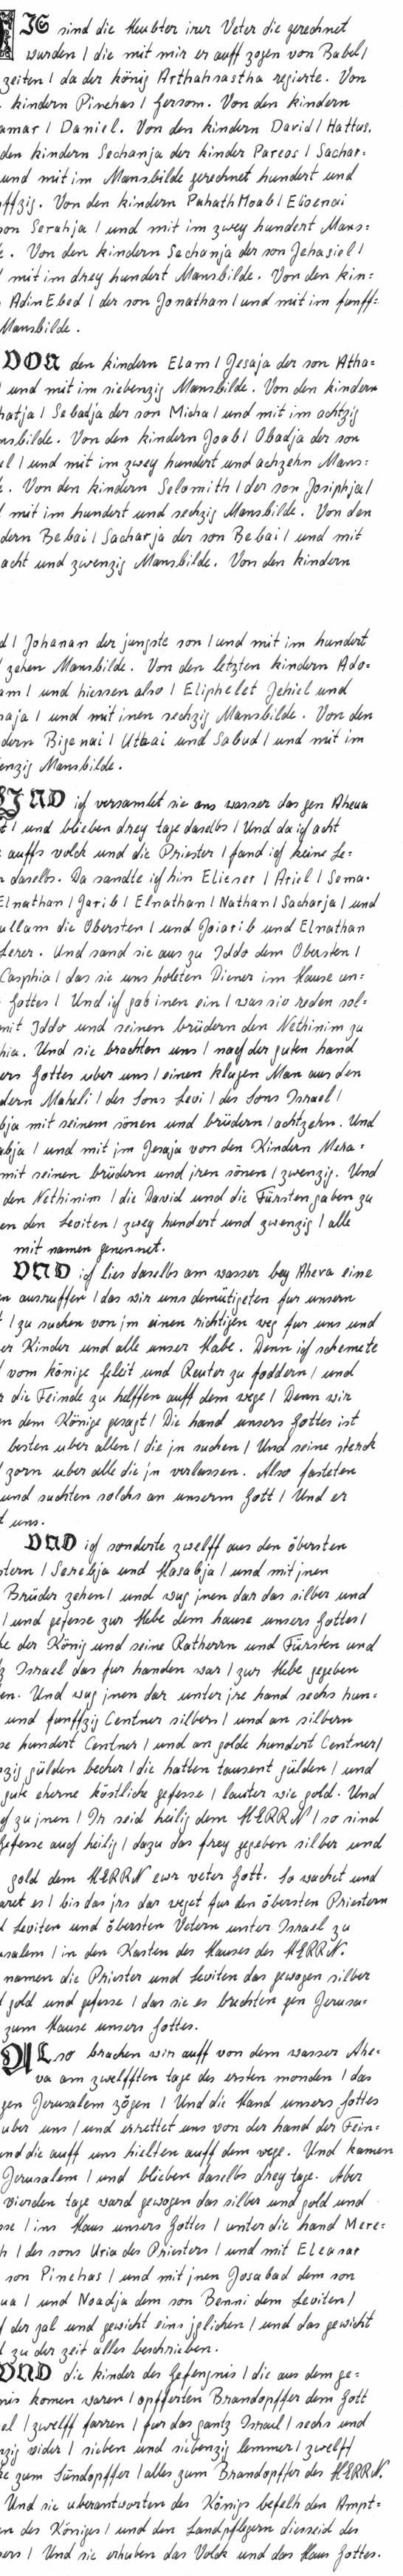 IS sind die Heubter irer Veter die gerechnet
wurden / die mit mir er auff zogen von Babel /
zeiten / da der könig Arthahsastha regierte. Von
kindern Pinehas / Gersom. Von den kindern
amar / Daniel. Von den kindern David / Hattus.
den kindern Sechanja der kinder Pareos / Sachar=
und mit im Mansbilde gerechnet hundert und
ffzig. Von den kindern PahathMoab / Elioenai
son Serahja / und mit im zwey hundert Mans=
e. Von den kindern Sechanja der son Jehasiel /
mit im drey hundert Mansbilde. Von den kin=
AdinEbed / der son Jonathan / und mit im funff=
Mansbilde.
VON den kindern Elam / Jesaja der son Atha=
/ und mit im siebenzig Mansbilde. Von den kindern
hatja / Sebadja der son Micha / und mit im achtzig
nsbilde. Von den kindern Joab / Obadja der son
el / und mit im zwey hundert und achzehn Mans=
e. Von den kindern Selomith / der son Josiphja /
mit im hundert und sechzig Mansbilde. Von den
dern Bebai / Sacharja der son Bebai / und mit
acht und zwenzig Mansbilde. Von den kindern
d / Johanan der jungste son / und mit im hundert
zehen Mansbilde. Von den letzten kindern Ado=
am / und hiessen also / Eliphelet Jehiel und
aja / und mit inen sechzig Mansbilde. Von den
dern Bigenai / Uthai und Sabud / und mit im
enzig Mansbilde.
UND ich versamlet sie ans wasser das gen Aheua
t / und blieben drey tage daselbs / Und da ich acht
auffs volck und die Priester / fand ich keine Le=
n daselbs. Da sandte ich hin Elieser / Ariel / Sema=
Elnathan / Jarib / Elnathan / Nathan / Sacharja / und
ullam die Obersten / und Joiarib und Elnathan
Lerer. Und sand sie aus zu Iddo dem Obersten /
Casphia / das sie uns holeten Diener im Hause un=
Gottes / Und ich gab inen ein / was sie reden sol=
mit Iddo und seinen brüdern den Nethinim zu
hia. Und sie brachten uns / nach der guten hand
ers Gottes uber uns / einen klugen Man aus den
dern Maheli / des Sons Levi / des Sons Israel /
bja mit seinem sönen und brüdern / achtzehn. Und
abja / und mit jm Jesaja von den Kindern Mera=
mit seinen brüdern und jren sönen / zwenzig. Und
den Nethinim / die David und die Fürsten gaben zu
en den Leviten / zwey hundert und zwenzig / alle
mit namen genennet.
UND ich lies daselbs am wasser bey Aheva eine
n ausruffen / das wir uns demütigeten fur unserm
t / zu suchen von jm einen richtigen weg fur uns und
er Kinder und alle unser Habe. Denn ich schemete
vom könige Geleit und Reuter zu foddern / und
r die Feinde zu helffen auff dem wege / Denn wir
en dem Könige gesagt / Die hand unsers Gottes ist
besten uber allen / die jn suchen / Und seine sterck
zorn uber alle die jn verlassen. Also fasteten
und suchten solchs an unserm Gott / Und er
t uns.
UND ich sonderte zwelff aus den öbersten
stern / Serebja und Hasabja / und mit jnen
Brüder zehen / und wug jnen dar das silber und
/ und gefesse zur Hebe dem hause unsers Gottes /
he der König und seine Ratherrn und Fürsten und
z Israel das fur handen war / zur Hebe gegeben
en. Und wug jnen dar unter jre hand sechs hun=
und funffzig Centner silbers / und an silbern
se hundert Centner / und an golde hundert Centner /
zig gülden becher / die hatten tausent gülden / und
gute eherne köstliche gefesse / lauter wie gold. Und
ch zu jnen / Ir seid heilig dem HERRN / so sind
Gefesse auch heilig / dazu das frey gegeben silber und
gold dem HERRN ewr veter Gott. So wachet und
aret es / bis das jrs dar weget fur den öbersten Priestern
d Leviten und öbersten Vetern unter Israel zu
usalem / in den Kasten des Hauses des HERRN.
namen die Priester und Leviten das gewogen silber
gold und gefesse / das sie es brechten gen Jerusa=
zum Hause unsers Gottes.
ALso brachen wir auff von dem wasser Ahe=
va am zwelfften tage des ersten monden / das
gen Jerusalem zögen / Und die Hand unsers Gottes
uber uns / und errettet uns von der hand der Fein=
und die auff uns hielten auff dem wege. Und kamen
Jerusalem / und blieben daselbs drey tage. Aber
vierden tage ward gewogen das silber und gold und
sse / ins Haus unsers Gottes / unter die hand Mere=
h / des sons Uria des Priesters / und mit Eleasar
son Pinehas / und mit jnen Josabad dem son
ua / und Noadja dem son Benni dem Leviten /
der zal und gewicht eins jglichen / und das gewicht
zu der zeit alles beschrieben.
UND die kinder des Gefengnis / die aus dem ge=
nis komen waren / opfferten Brandopffer dem Gott
el / zwelff farren / fur das gantz Israel / sechs und
nzig wider / sieben und siebenzig lemmer / zwelff
ke zum Sündopffer / alles zum Brandopffer des HERRN.
Und sie uberantworten des Königs befelh den Ampt=
en des Königes / und den Landpflegern diesseid des
ers / Und sie erhuben das Volck und das Haus Gottes.